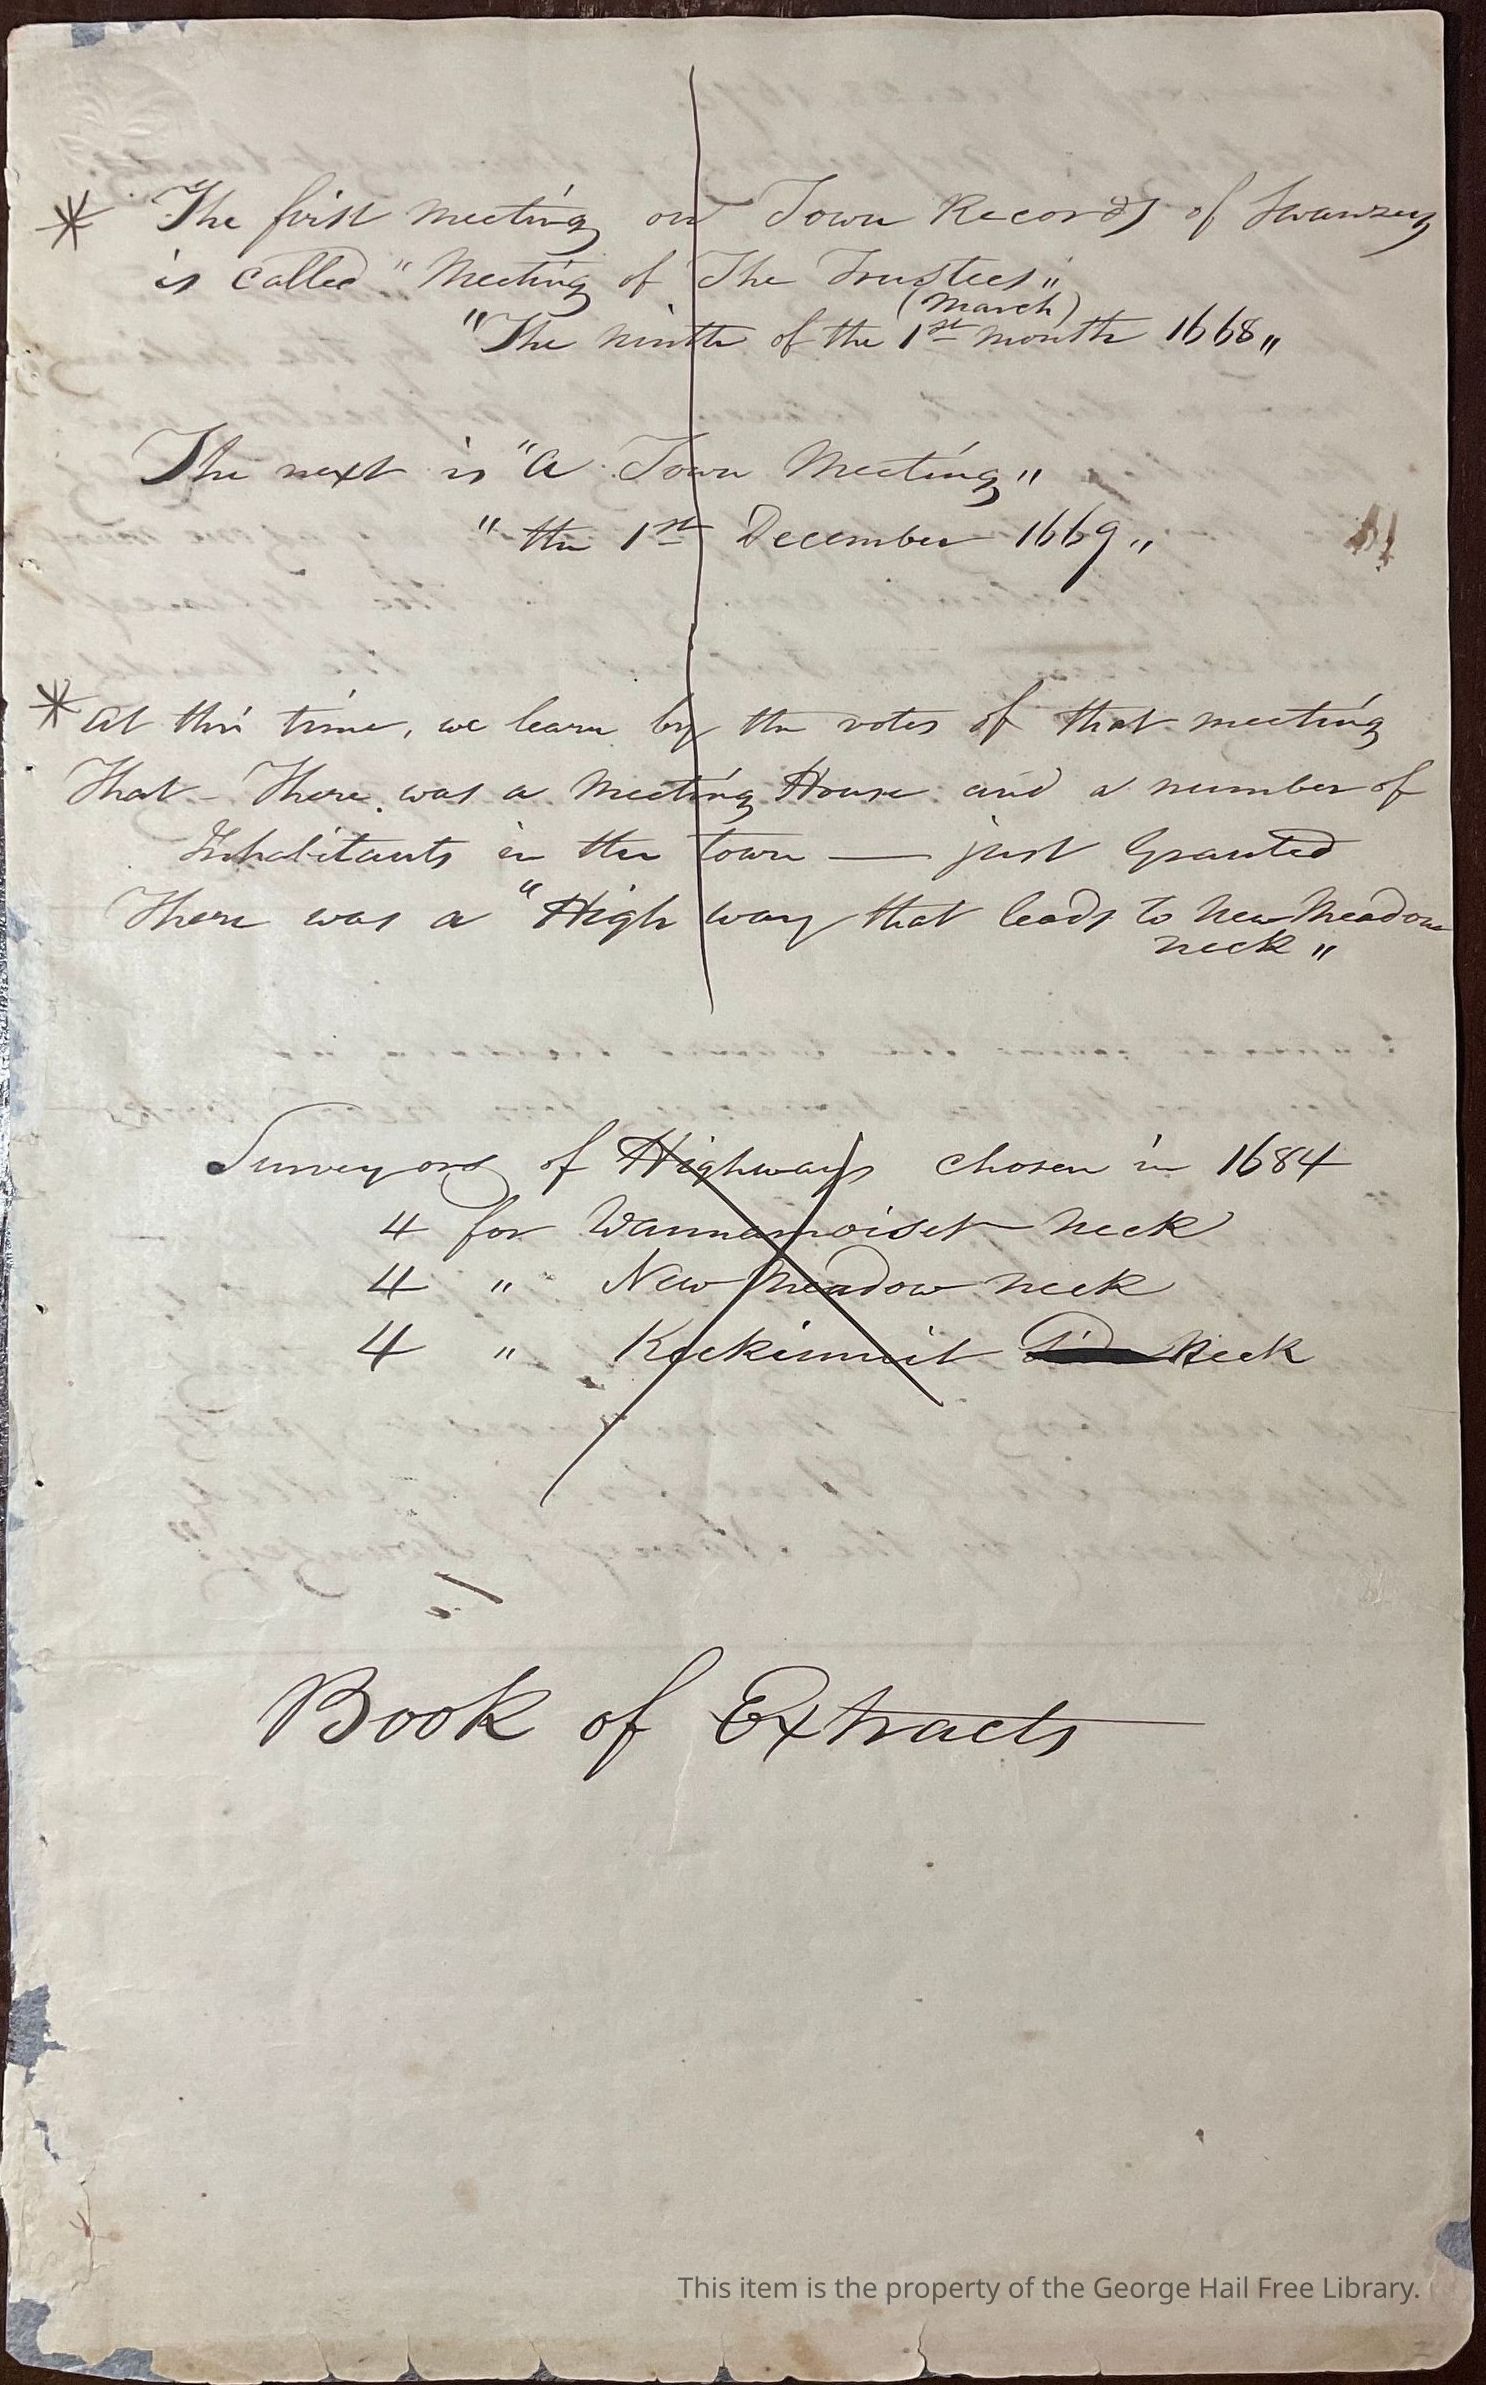 * The first meeting on Town Records of Swanzey
is called "Meeting of The Trustees"
(March)
"The ninth of the 1st month 1668"
The next is "A Town Meeting"
"the 1st December 1669"
* At this time, we learn by the votes of that meeting
That - There was a Meeting House and a number of
Inhabitants in the town — just Granted
There was a "High way that leads to New Meadow
neck"
Surveyors of Highways chosen in 1684
4 for Wannamoiset Neck
4 " New Meadow neck
4 " Keekimuit Neck
Book of Extracts
This item is the property of the George Hail Free Library.